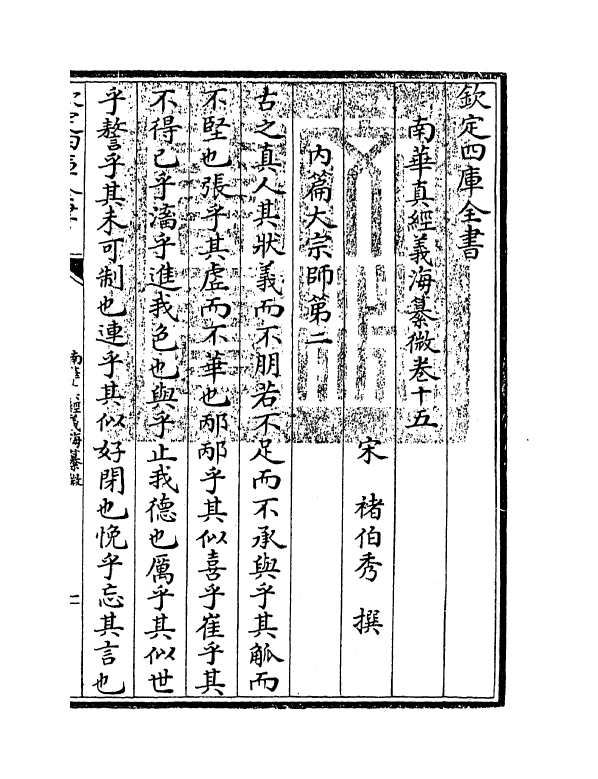 欽定四庫全書
南華真經義海纂微卷十五
宋 褚伯秀 撰
内篇大宗師第二
古之真人其狀義而不朋若不足而不承與乎其觚而
不堅也張乎其虛而不華也邴邴乎其似喜乎崔乎其
不得已乎滀乎進我色也與乎止我德也厲乎其似世
乎謷乎其未可制也連乎其似好閉也悗乎忘其言也